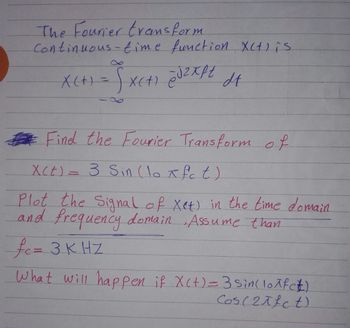 The Fourier transform
continuous-time function X(t) is
X(t) = ∫_{-∞}^{∞} X(t) e^{-j2πft} dt
Find the Fourier Transform of
X(t) = 3 Sin (10 π fc t)
Plot the Signal of X(t) in the time domain
and frequency domain , Assume than
fc = 3 KHZ
What will happen if X(t) = 3 sin(10πfct)
Cos(2πfc t)